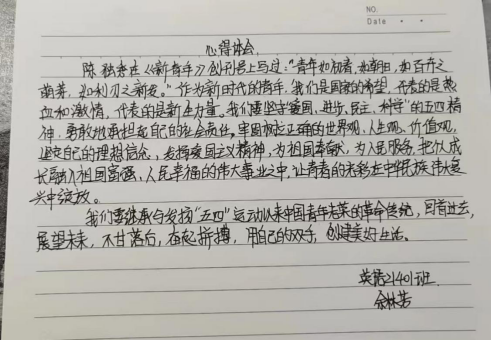 NO.
Date
心得体会
陈独秀在《新青年》创刊号上写过：“青年如初春，如朝日，如百卉之
萌芽，如利刃之新发。”作为新时代的青年，我们是国家的希望，代表的是热
血和激情，代表的是新生力量。我们要坚守“爱国、进步、民主、科学”的五四精
神，勇敢地承担起自己的社会责任，牢固树立正确的世界观、人生观、价值观，
坚定自己的理想信念，发扬爱国主义精神，为祖国奉献，为人民服务，把个人成
长融入祖国富强、人民幸福的伟大事业之中，让青春的光彩在中华民族伟大复
兴中绽放。
我们要继承与发扬“五四”运动以来中国青年光荣的革命传统，回首过去，
展望未来，不甘落后，奋起拼搏，用自己的双手，创建美好生活。
英语21401班
余林芳